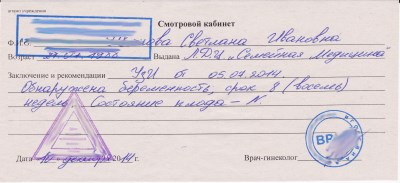 Смотровой кабинет
Ф.И.О. Светлана Ивановна
Возраст Выдана ЛДЦ „Семейная Медицина"
Заключение и рекомендации УЗИ от 05.07.2014.
Обнаружена беременность, срок 8 (восемь)
недель. Состояние плода – N.
ВРАЧ
Дата 10 декабря 2014 г. Врач-гинеколог